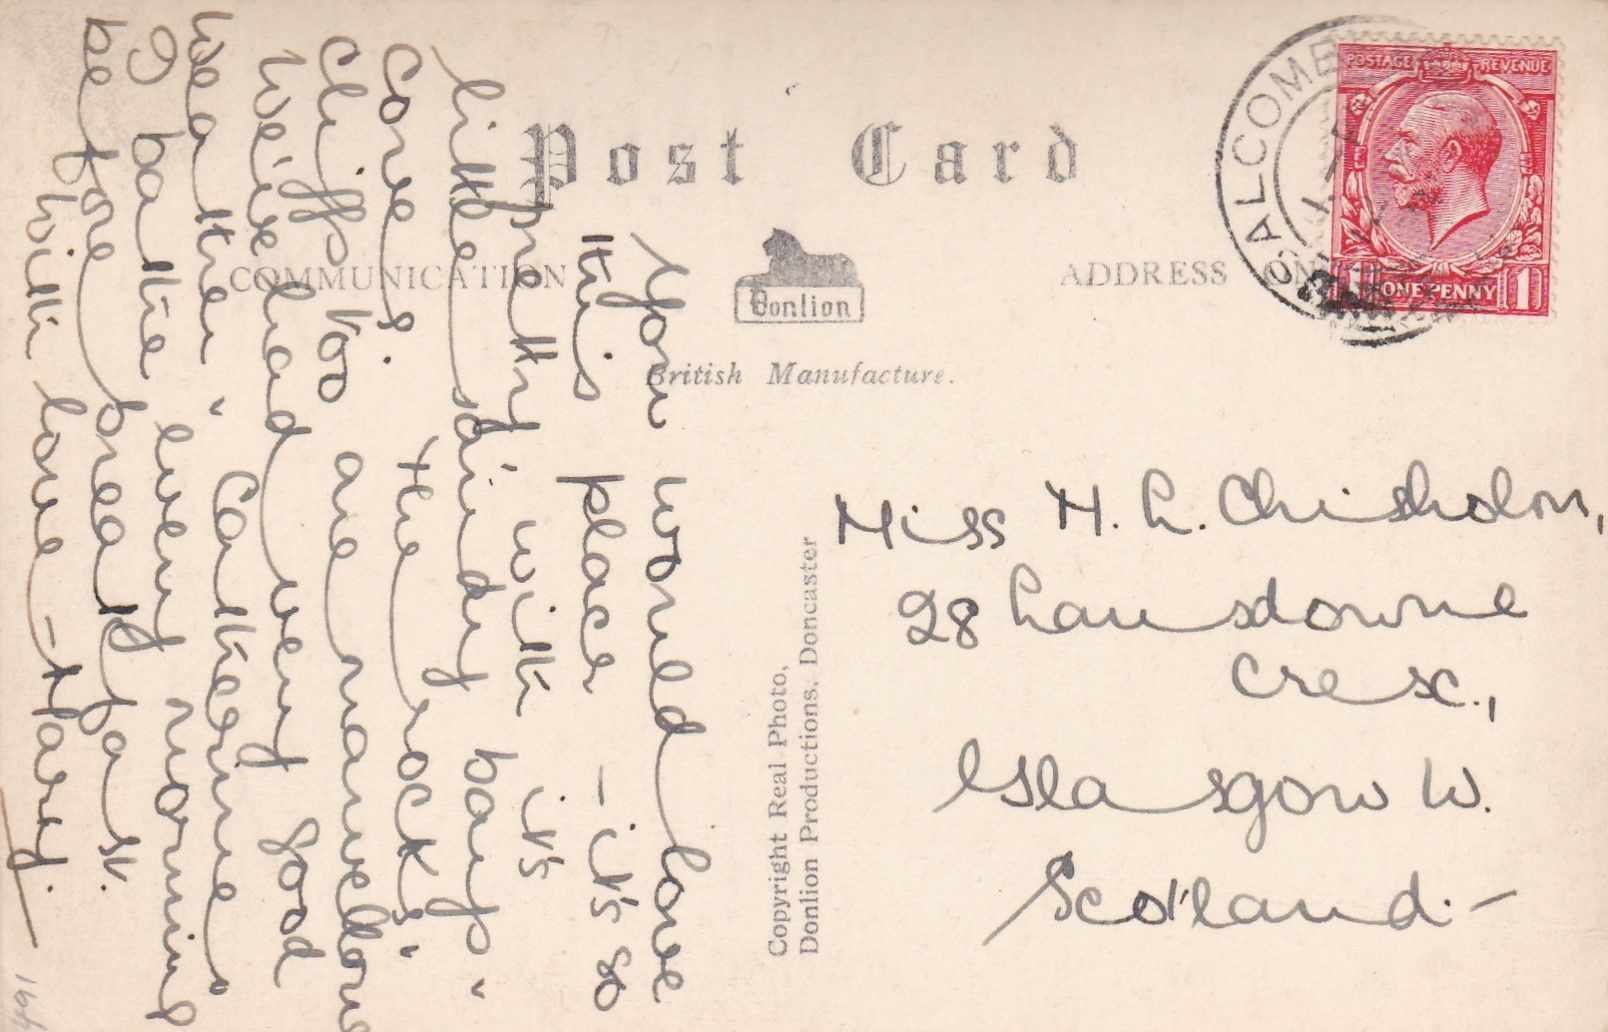 Post Card
COMMUNICATION
Donlion
ADDRESS ON
British Manufacture.
CALCOMBE
POSTAGE REVENUE
ONE PENNY 1
You would love
this place – it's so
pretty with it's
little sandy bays &
coves. The rocks &
cliffs too are marvellous
We've had very good
weather & Catherine &
I bathe every morning
before breakfast.
With love –
Copyright Real Photo,
Donlion Productions, Doncaster
Miss H. L. Chisholm,
28 Lansdowne
Cresc.,
Glasgow W.
Scotland. –